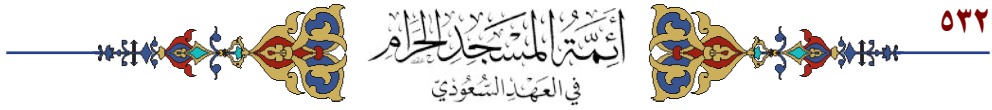 ٥٣٢
أَئِمَّةُ المَسْجِدِ الحَرَامِ
في العَهْدِ السُّعُودِيّ